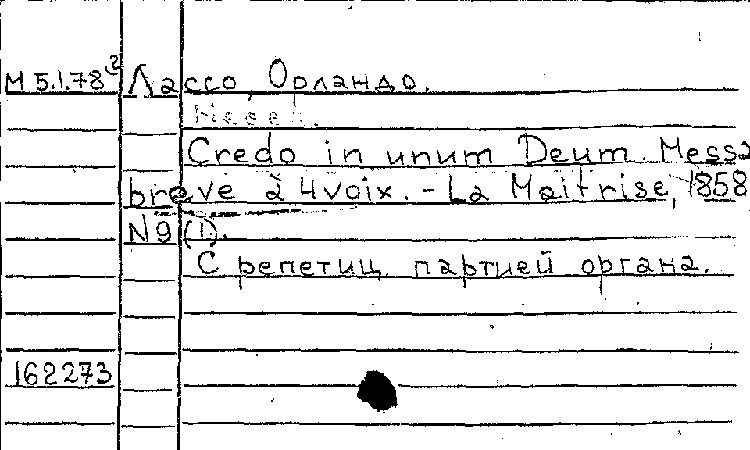 М 5.1.78² Лассо, Орландо.
Credo in unum Deum. Messa
breve à 4 voix. - La Maitrise, 1858
N9 (1).
С репетиц. партией органа.
162273